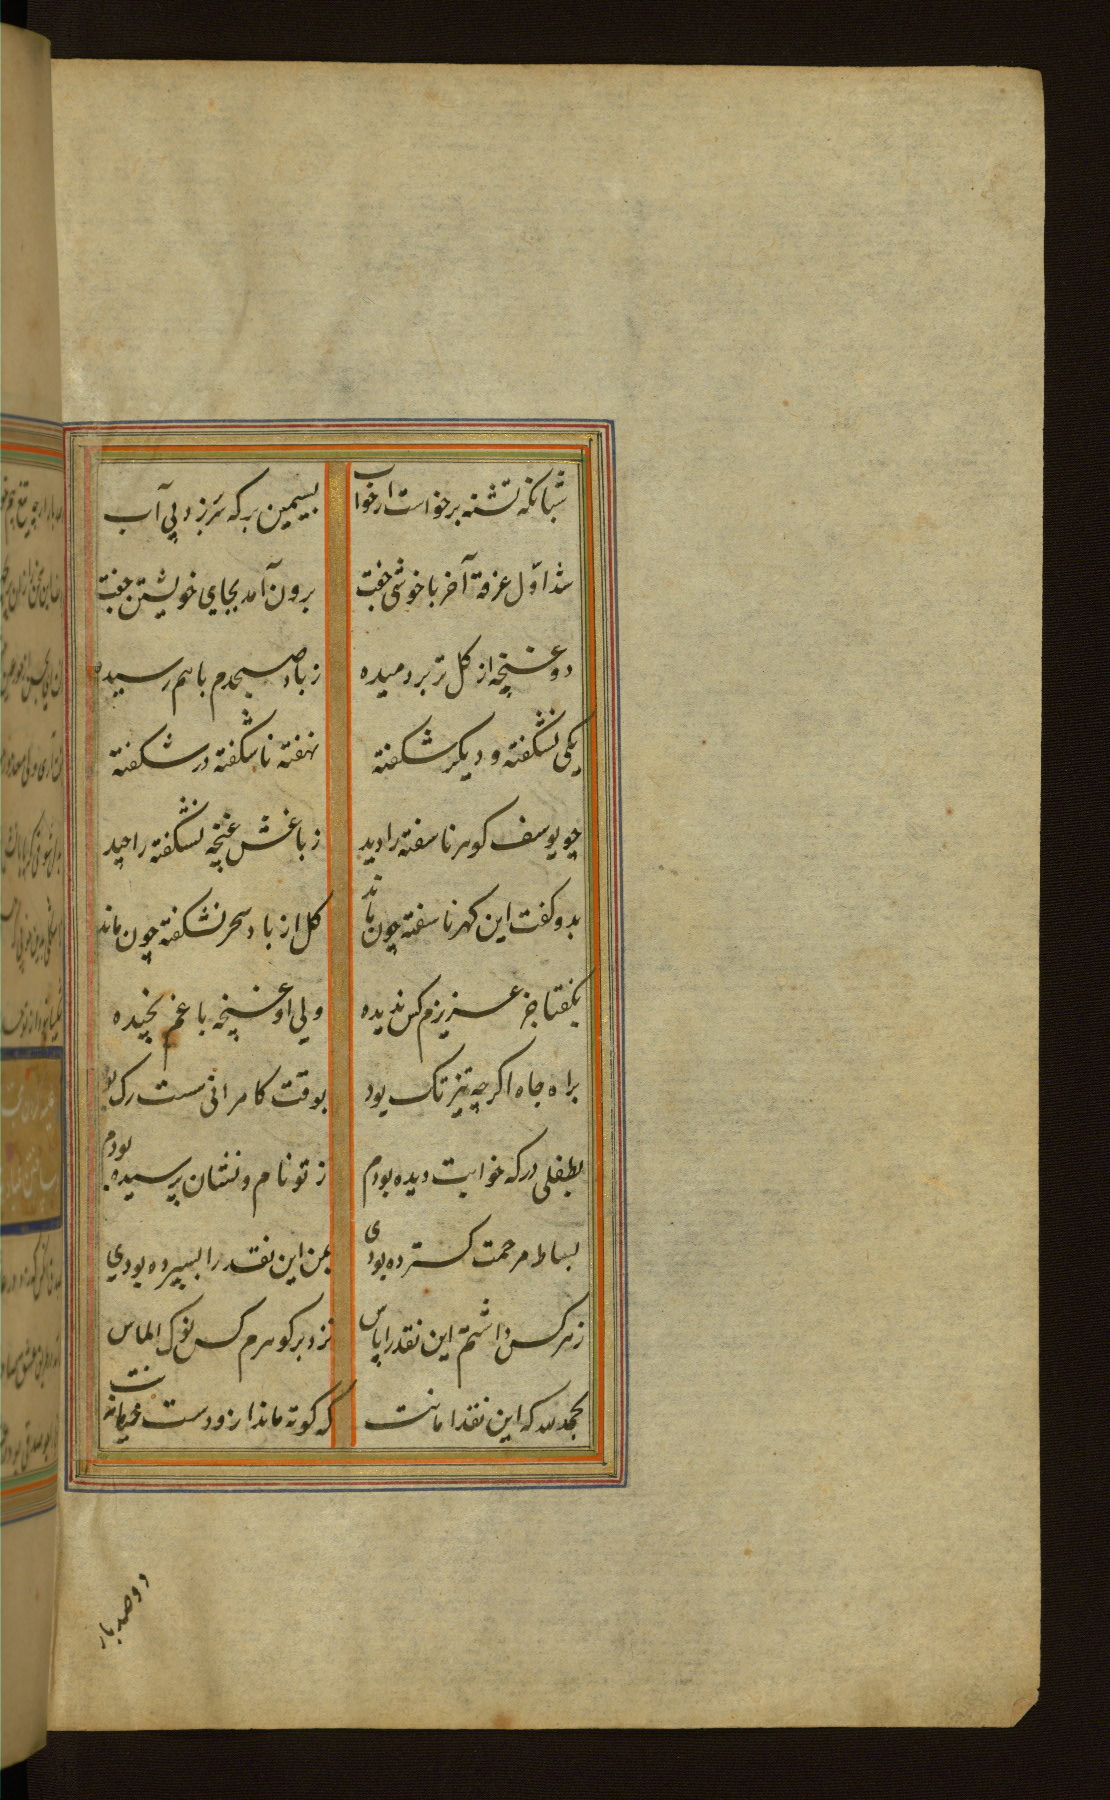 شبانکه تشنه برخواست از خواب بسیمین برکه سر زد پی آب
شد اوّل غرقه آخر با خوشی خفت برون آمد بجای خویشتن خفت
دو غنچه از کل تر بردمیده ز باد صبحدم با هم رسیده
یکی نشکفته و دیکر شکفته نهفته ناشکفته در شکفته
چو یوسف کوهر ناسفته را دید ز باغش غنچه نشکفته را چید
بدو کفت این کهر ناسفته چون ماند کل از باد سحر نشکفته چون ماند
بکفتا جز عزیزم کس ندیده ولی او غنچه باغم نچیده
براه جاه اکرچه تیز تک بود بوقت کامرانی سست رک بود
بطفلی در که خوابت دیده بودم ز تو نام و نشان پرسیده بودم
بساط مرحمت کسترده بودی بمن این نقد را بسپرده بودی
ز هر کس داشتم این نقد را پاس نزد بر کوهرم کس نوک الماس
بحمدلله که این نقد امانت که کوته ماند ازو دست خیانت
دو صد بار